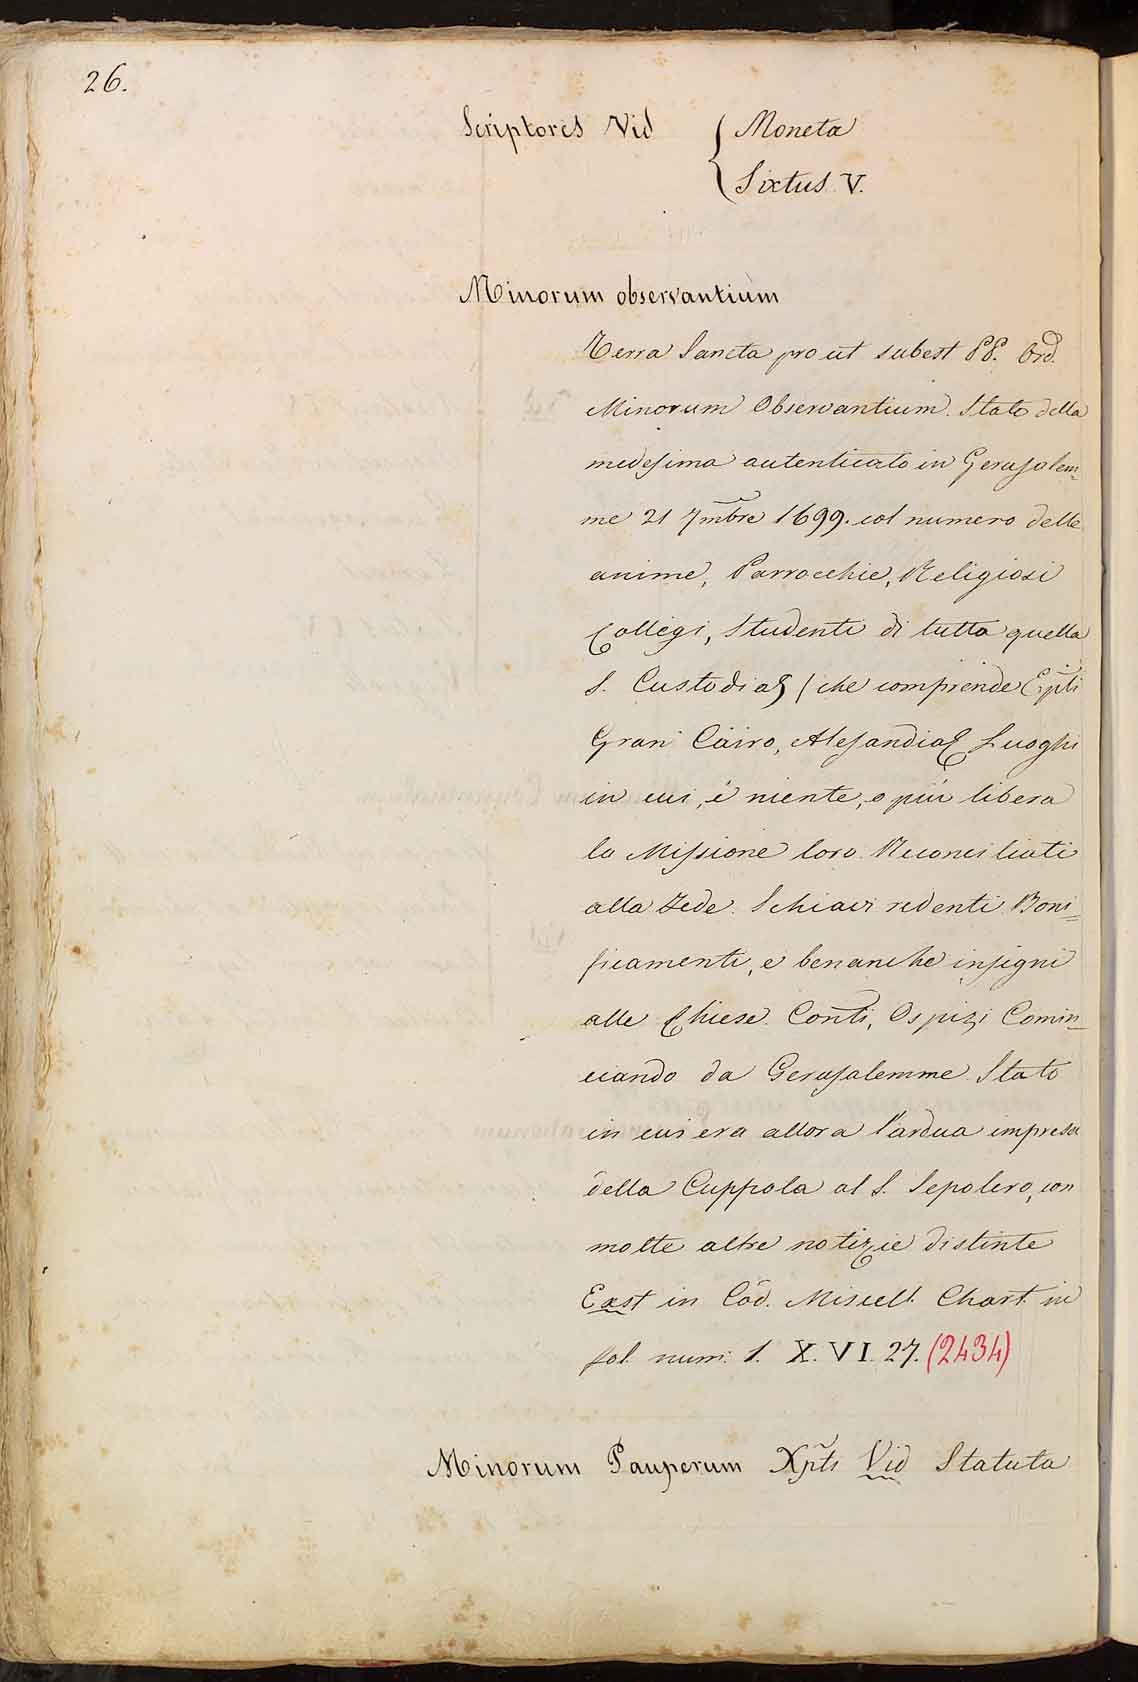 26.
Scriptores Vid { Moneta
Sixtus V.
Minorum observantium
Terra Sancta prout subest PP. Ord.
Minorum Observantium. Stato della
medesima autenticato in Gerusalem-
me 21 7mbre 1699. col numero delle
anime, Parrocchie, Religiosi
Collegi, Studenti di tutta quella
S. Custodia, (che comprende
Gran Cairo, Luoghi
in cui, è niente, o più libera
la Missione loro. Reconciliati
alla Fede. Schiavi redenti Boni=
ficamenti, e benanche insigni
alle Chiese. Conti, Ospizi Comin-
ciando da Gerusalemme. Stato
in cui era allora l'ardua impresa
della Cuppola al S. Sepolcro, con
molte altre notizie distinte
Exst in Cod. Miscell. Chart. in
fol. num. 1. X. VI. 27. (2434)
Minorum Pauperum Xpti Vid Statuta